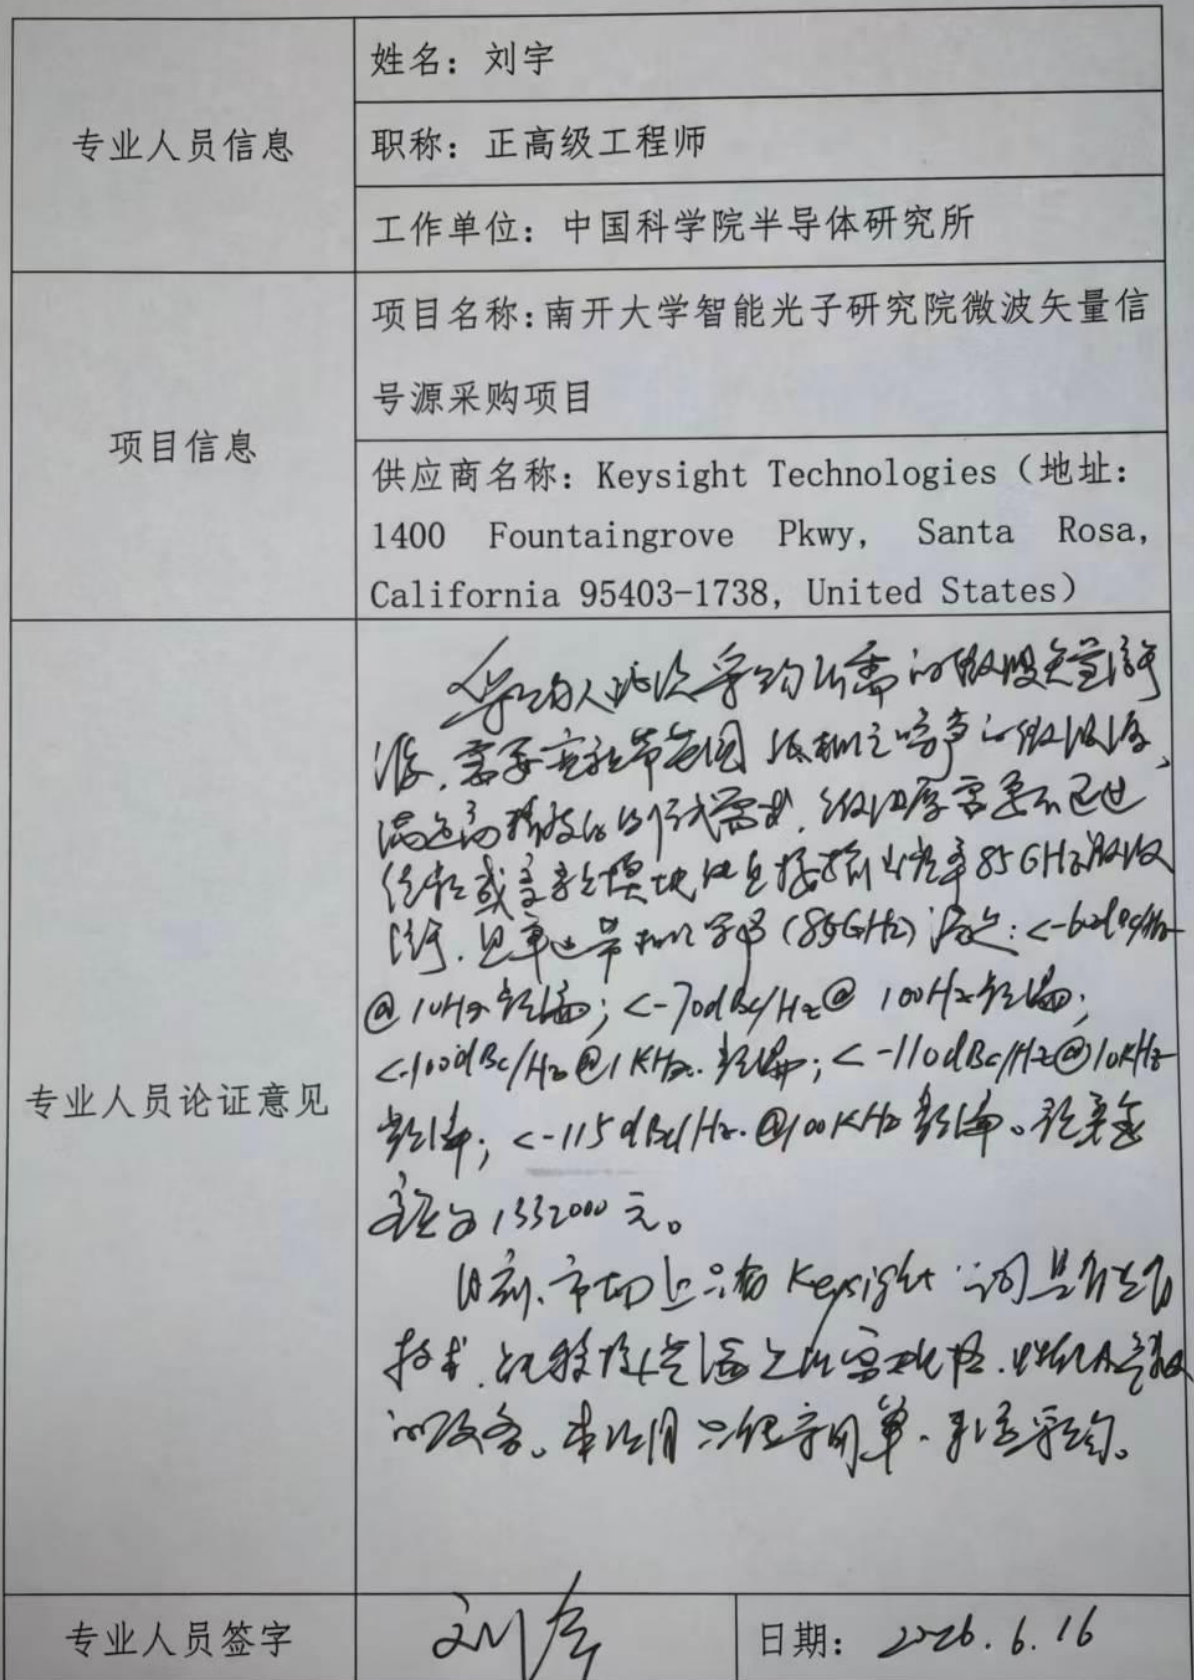 专业人员信息
姓名：刘宇
职称：正高级工程师
工作单位：中国科学院半导体研究所
项目信息
项目名称：南开大学智能光子研究院微波矢量信
号源采购项目
供应商名称：Keysight Technologies（地址：
1400 Fountaingrove Pkwy, Santa Rosa,
California 95403-1738, United States）
专业人员论证意见
采购人此次采购所需的微波矢量信号
源，需要宽频带范围 低相位噪声的微波源，
满足高精度的测试需求，微波源需要不通过
倍频或变频模块便直接输出频率85GHz微波
信号，且单边带相位噪声（85GHz）满足：<-60dBc/Hz
@10Hz频偏；<-70dBc/Hz@ 100Hz频偏；
<-100dBc/Hz@1KHz 频偏；<-110dBc/Hz@10KHz
频偏；<-115dBc/Hz @100KHz 频偏。预算金
额为1332000元。
目前，市场上只有Keysight 公司
技术，
的设备。采购，单一来源采购。
专业人员签字
刘宇
日期：2026.6.16